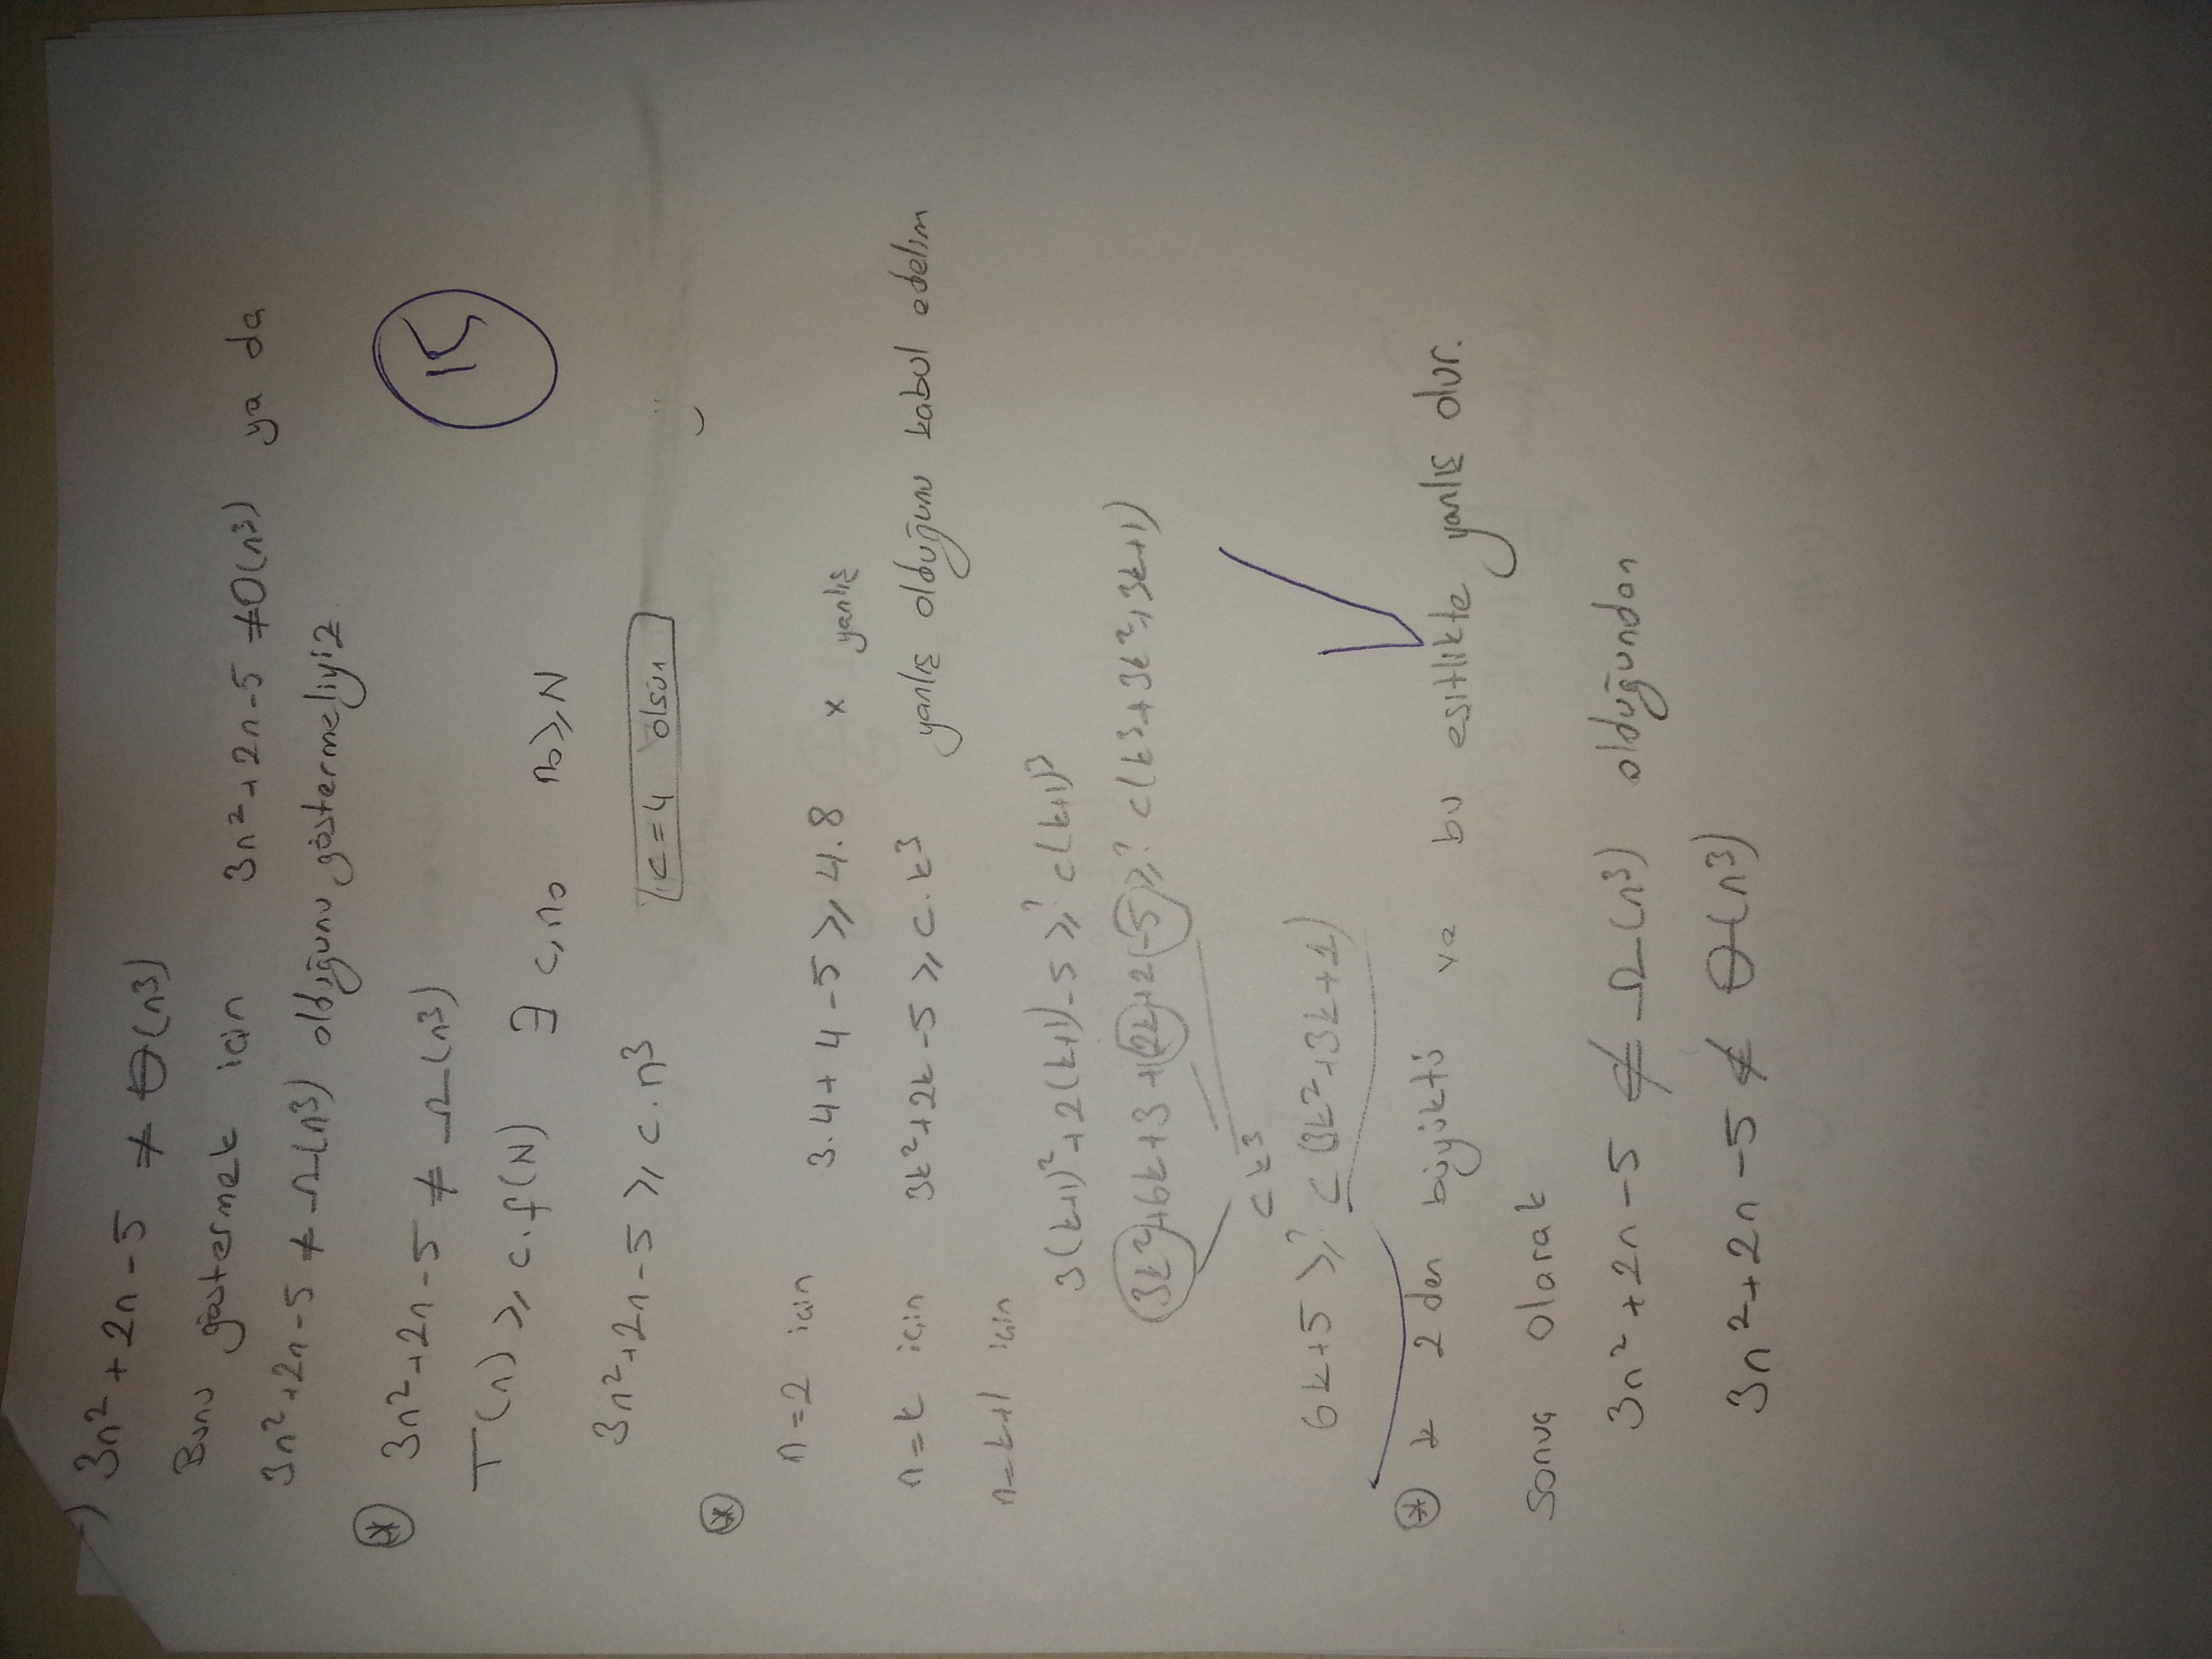 -) 3n² + 2n - 5 ≠ Θ(n³)
Bunu göstermek için 3n² + 2n - 5 ≠ O(n³) ya da
3n² + 2n - 5 ≠ Ω(n³) olduğunu göstermeliyiz
* 3n² + 2n - 5 ≠ Ω(n³)
15
T(n) ≥ c.f(N) ∃ c, n₀ n₀ ≥ N
3n² + 2n - 5 ≥ c.n³ c = 4 olsun
*
n = 2 için 3.4 + 4 - 5 ≥ 4.8 x yanlış
n = k için 3k² + 2k - 5 ≥ c.k³ yanlış olduğunu kabul edelim
n = k+1 için
3(k+1)² + 2(k+1) - 5 ≥? c(k+1)³
3k² + 6k + 3 + 2k + 2 - 5 ≥? c(k³ + 3k² + 3k + 1)
ck³
6k + 5 ≥? c(3k² + 3k + 1)
* k 2 den büyüktü ve bu eşitlikte yanlış olur.
Sonuç olarak
3n² + 2n - 5 ∉ Ω(n³) olduğundan
3n² + 2n - 5 ∉ Θ(n³)